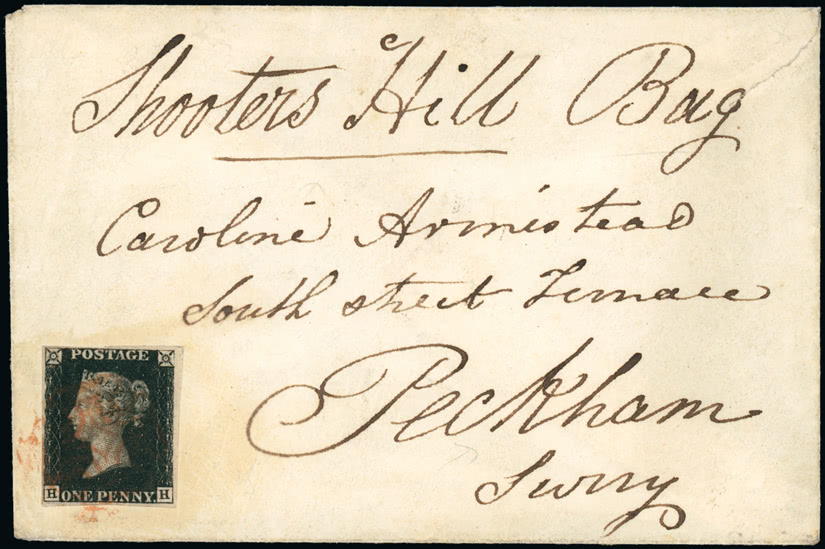 Shooters Hill Bag
Caroline Armistead
South street Terrace
Peckham
Surry
POSTAGE
ONE PENNY.
H H